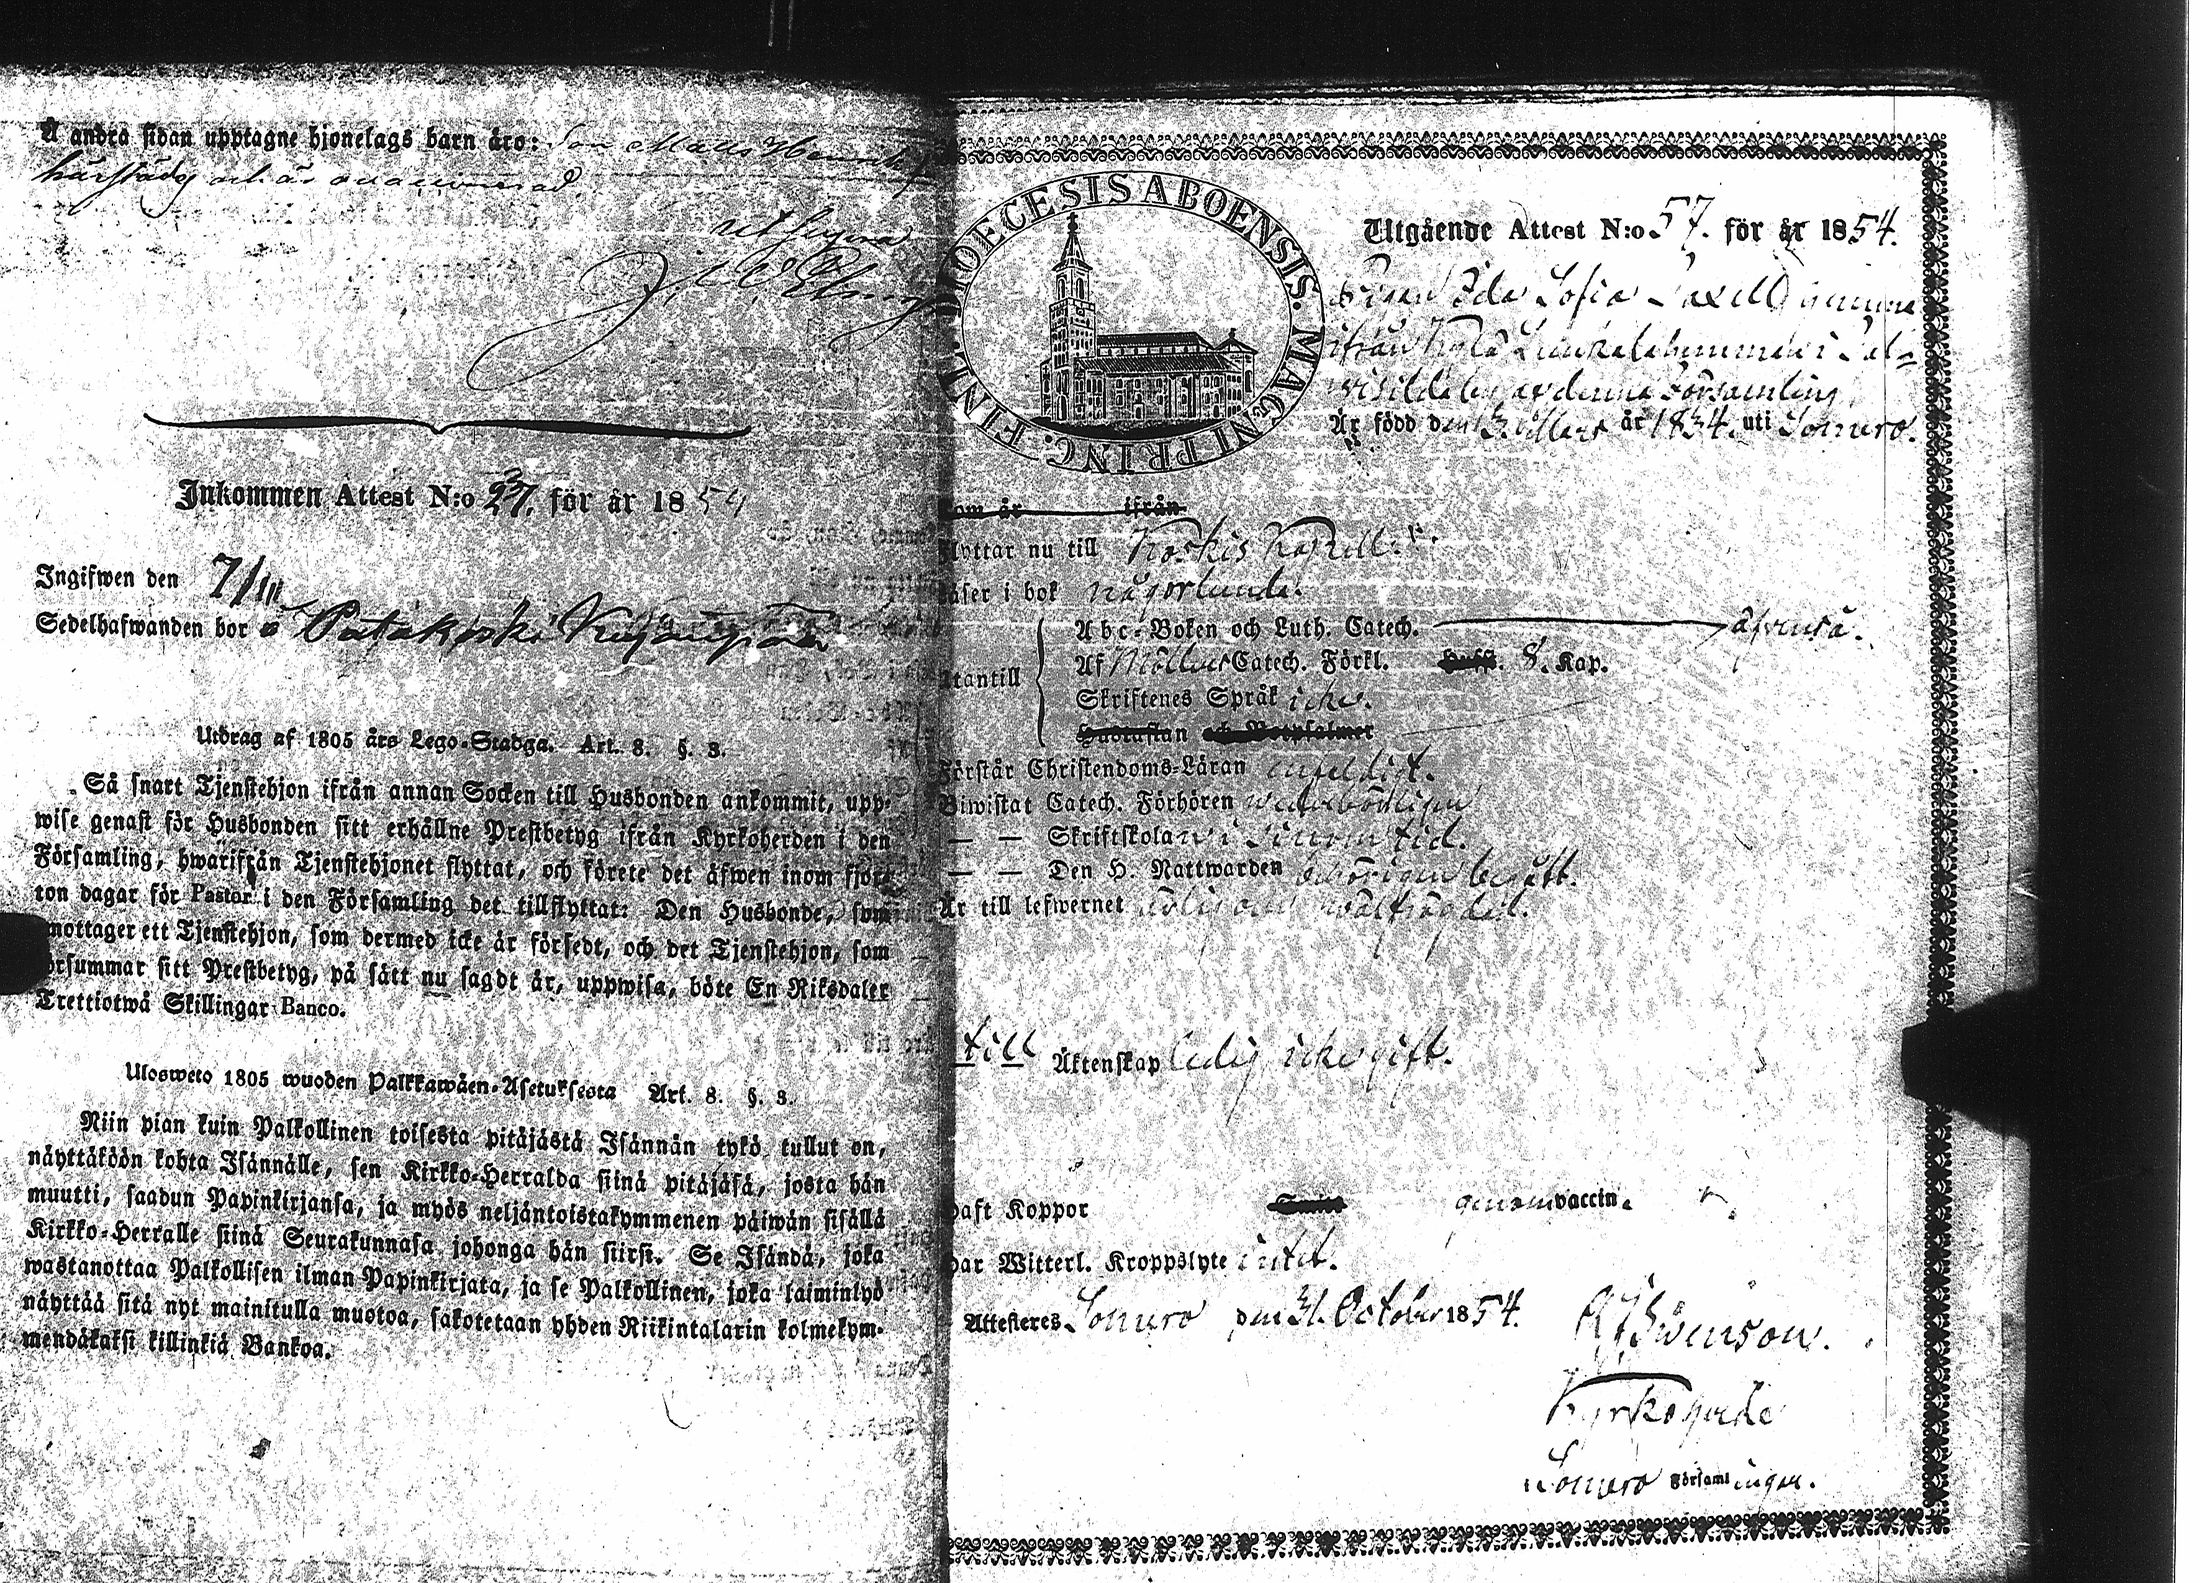 Å andra sidan upptagne hjonelags barn äro: Son Matts Henrik
härstädes och är ovaccinerad.
Inkommen Attest N:o 27. för år 1854
Ingifwen den 7/11
Sedelhafwanden bor å Patakoski
Utdrag af 1805 års Lego-Stadga. Art. 8. §. 3.
Så snart Tjenstehjon ifrån annan Socken till Husbonden ankommit, upp-
wise genast för Husbonden sitt erhållne Prestbetyg ifrån Kyrkoherden i den
Församling, hwarifrån Tjenstehjonet flyttat, och förete det äfwen inom fjor-
ton dagar för Pastor i den Församling det tillflyttat: Den Husbonde, som
mottager ett Tjenstehjon, som dermed icke är försedt, och det Tjenstehjon, som
försummar sitt Prestbetyg, på sätt nu sagdt är, uppwisa, böte En Riksdaler
Trettiotwå Skillingar Banco.
Ulosweto 1805 wuoden Palkkawäen-Asetuksesta Art. 8. §. 3.
Niin pian kuin Palkollinen toisesta pitäjästä Isännän tykö tullut on,
näyttäköön kohta Isännälle, sen Kirkko-Herralda siinä pitäjäsä, josta hän
muutti, saadun Papinkirjansa, ja myös neljäntoistakymmenen päiwän sisällä
Kirkko-Herralle siinä Seurakunnasa johonga hän siirsi. Se Isändä, joka
wastanottaa Palkollisen ilman Papinkirjata, ja se Palkollinen, joka laiminlyö
näyttää sitä nyt mainitulla muotoa, sakotetaan yhden Riikintalarin kolmekym-
mendäkaksi killinkiä Bankoa.
DIOECESIS ABOENSIS. MAGNI PRINC. FINL.
Utgående Attest N:o 57. för år 1854.
Pigan Ida Sofia Saxell hemma
ifrån
af denna Församling,
Är född den 3. år 1834. uti Somero.
som år ifrån
Flyttar nu till Koskis Kapell.
Läser i bok någorlunda.
Abc-Boken och Luth. Catech. äfvenså.
Utantill Af Möllers Catech. Förkl. 8. Kap.
Skriftenes Språk icke.
Hustaflan och Botpsalmer
Förstår Christendoms-Läran enfeldigt.
Biwistat Catech. Förhören wederbörligen
— — Skriftskolan i sinom tid.
— — Den H. Nattwarden behörigen begått.
Är till lefwernet ärlig och wälfrägdad.
till Äktenskap ledig icke gift.
Haft Koppor genom vaccin.
Har Witterl. Kroppslyte intet.
Attesteres Somero den 31. October 1854. Swenson.
Kyrkoherde
i Somero Församlingar.